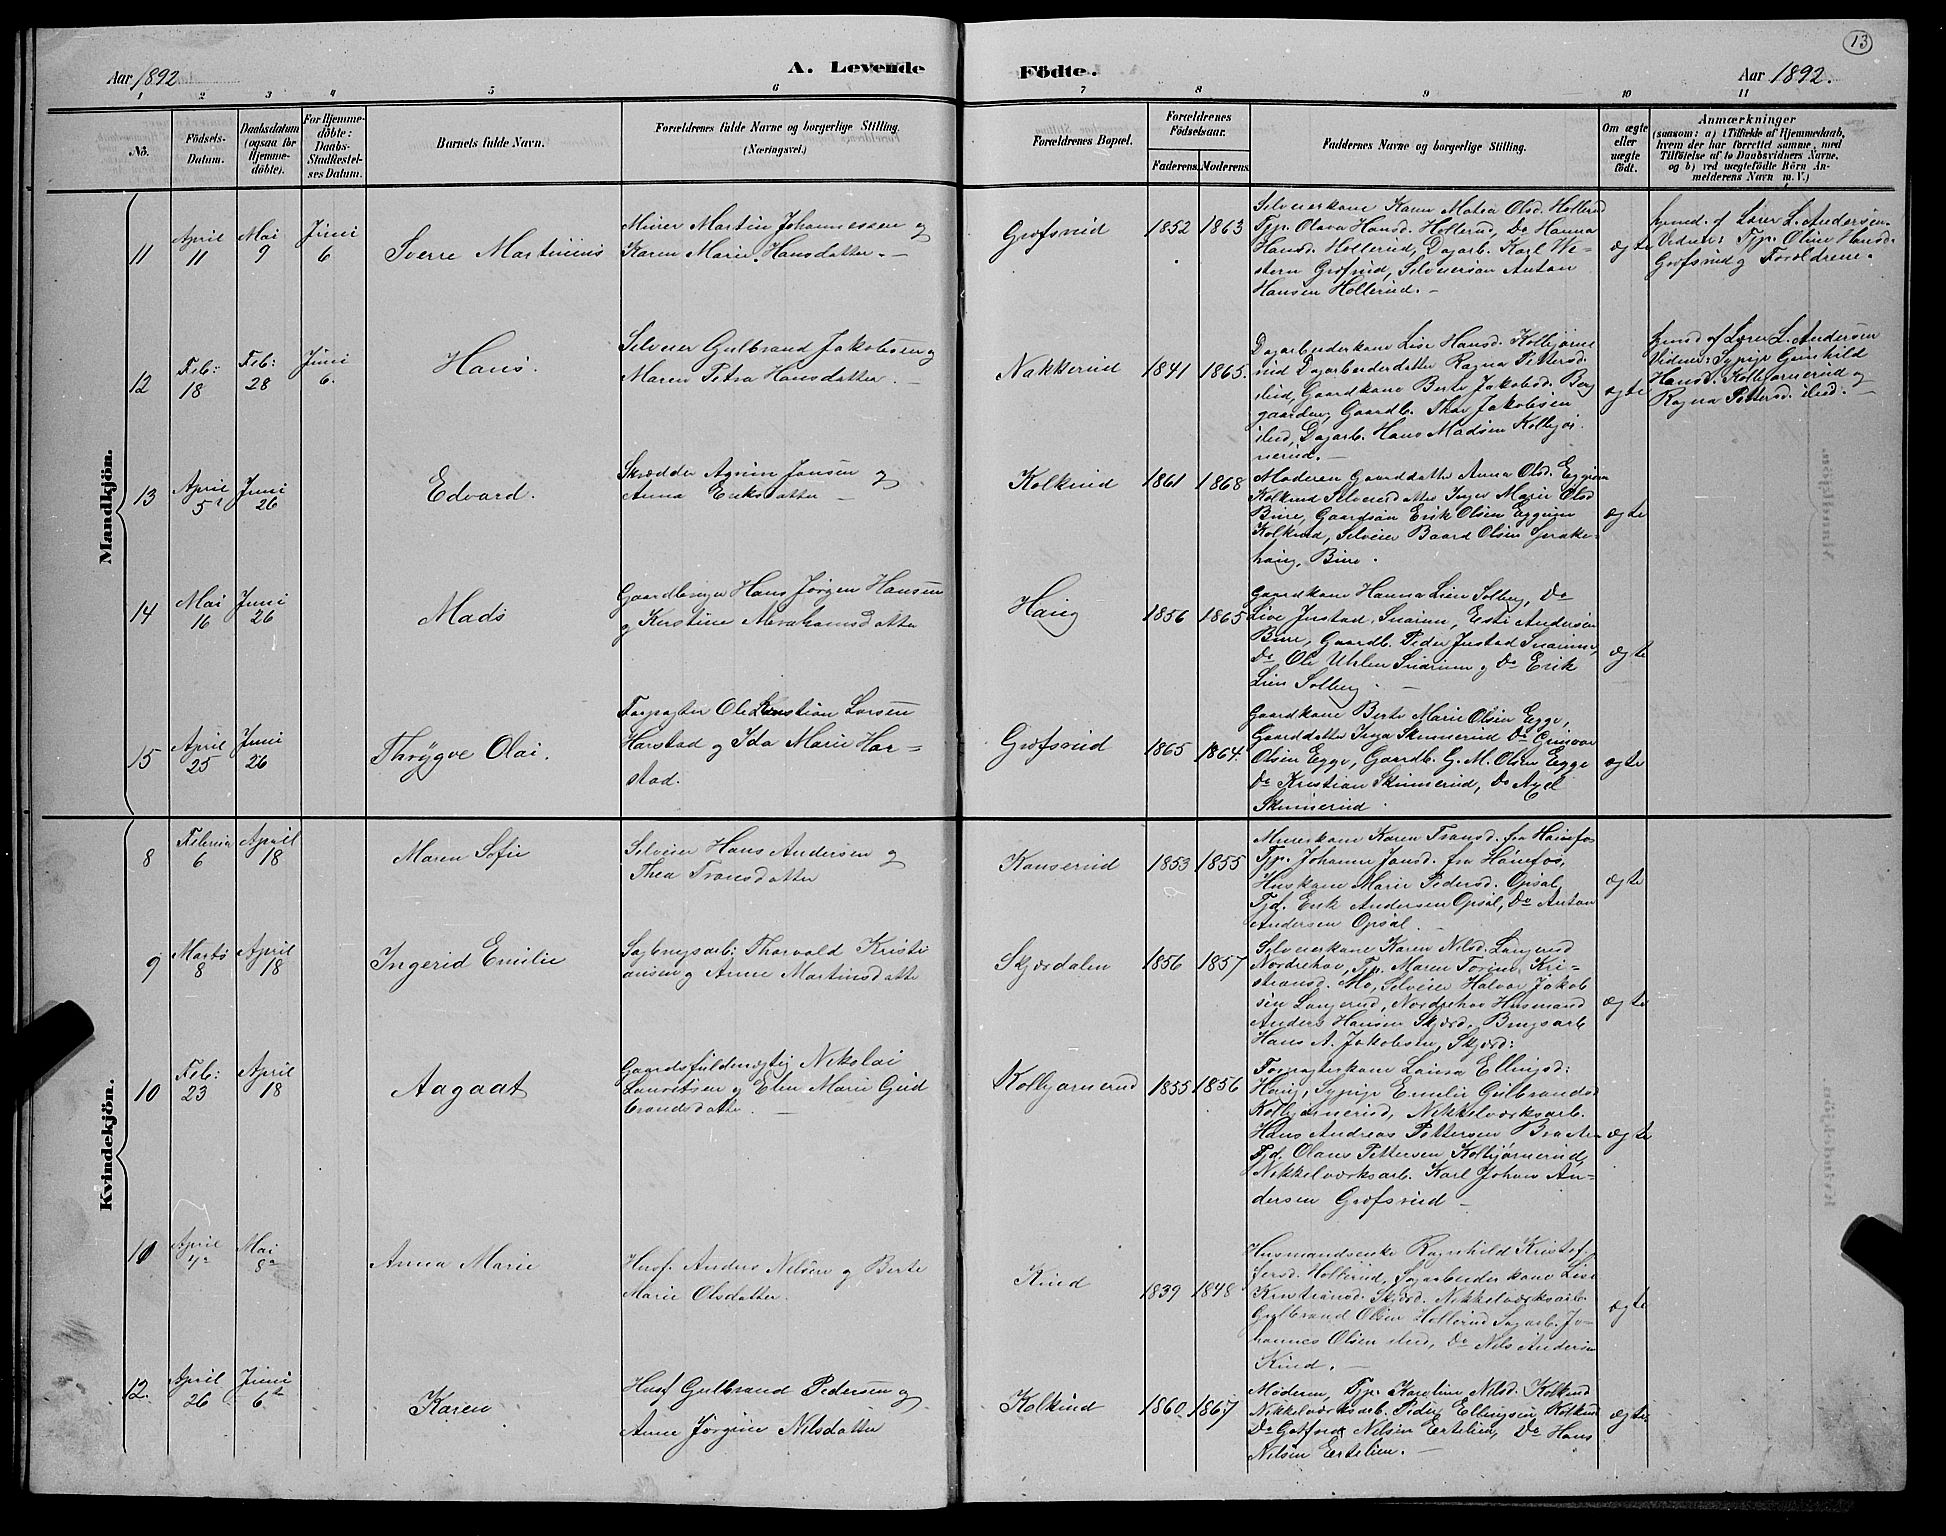 13
Aar 1892.
A. Levende
Födte.
Aar 1892.
1 2 3 4 5 6 7 8 9 10 11
No.
Födsels-
Datum.
Daabsdatum
(ogsaa for
Hjemme-
döbte).
For Hjemme-
döbte:
Daabs-
Stadfæstel-
ses Datum.
Barnets fulde Navn.
Forældrenes fulde Navne og borgerlige Stilling.
(Næringsvei.)
Forældrenes Bopæl.
Forældrenes
Födselsaar.
Faderens. Moderens.
Faddernes Navne og borgerlige Stilling.
Om ægte
eller
uægte
födt.
Anmærkninger
(saasom: a) i Tilfælde af Hjemmedaab,
hvem der har forrettet samme, med
Tilföielse af to Daabsvidners Navne,
og b) ved uægtefödte Börn An-
melderens Navn m. V.)
Mandkjön.
11
April
11
Mai
9
Juni
6
Sverre Martinius
Murer Martin Johannessen og
Karen Marie Hansdatter. —
Grøfsrud
1852 1863
Selveierkone Karen Matea Olsd. Hollerud
Tjp. Olava Hansd. Hollerud, Do Hanna
Hansd. Hollerud, Dagarb. Karl We-
stern Grøfsrud, Selveiersøn Anton
Hansen Hollerud. —
ægte
hjemd. af Lærer L. Andersen
Vidner: Tjp. Oline Hansd.
Grøfsrud og Forældrene.
12
Feb:
18
Feb:
28
Juni
6.
Hans.
Selveier Gulbrand Jakobsen og
Maren Petra Hansdatter. —
Nakkerud
1841 1865.
Dagarbeiderkone Lise Hansd. Kolbjørne
rud Dagarbeiderdatter Ragna Pettersd.
ibid, Gaardkone Berte Jakobsd. Berg
gaarden, Gaardb. Thor Jakobsen
ibid, Dagarb. Hans Madsen Kolbjør
nerud. —
ægte
hjemd af Lærer L. Andersen
Vidner: Sypige Gunhild
Hansd. Kolbjørnerud og
Ragna Pettersd. ibid. —
13
April
5t
Juni
26
Edvard.
Skrædder Agrim Jansen og
Anna Eriksdatter —
Kolkind
1861 1868
Moderen Gaarddatter Anna Olsd. Eggium
Kolkind Selveierdatter Inger Marie Olsd
Bure, Gaardsøn Erik Olsen Eggium
Kolkind, Selveier Baard Olsen Sprake-
haug, Bure.
ægte
14
Mai
16
Juni
26
Mads
Gaardbruger Hans Jørgen Hansen
og Kerstine Abrahamsdatter
Haug
1856 1865
Gaardkone Hanna Lien Solberg, Do
Live Justad Snarum, Esti Andersen
Bure, Gaardb. Peder Justad Snarum,
Do Ole Uhlen Snarum og Do Erik
Lien Solberg. —
ægte
15
April
25
Juni
26
Thrygve Olai.
Forpagter Ole Kristian Larsen
Harstad og Ida Marie Har=
stad.
Grøfsrud
1865 1864.
Gaardkone Berte Marie Olsen Egge,
Gaarddatter Inga Skinnerud Do Gunvor
Olsen Egge, Gaardb. G. M. Olsen Egge
Do Kristian Skinnerud, Do Axel
Skinnerud.
ægte
Kvindekjön.
8
Februar
6
April
18
Maren Sofie
Selveier Hans Andersen og
Thea Fransdatter
Kanserud
1853 1855
Murerkone Karen Fransd. fra Hønefos
Tjp. Johanne Jansd. fra Hønefos,
Huskone Marie Pedersd. Opsal,
Tjd. Erik Andersen Opsal, Do Anton
Andersen Opsal. —
ægte
9
Marts
8
April
18
Ingerid Emilie
Sagbrugsarb: Thorvald Kristi
ansen og Anne Martinsdatter
Skjærdalen
1856 1857
Selveierkone Karen Nilsd. Langerud
Norderhov, Tjp. Maren Torine Kri-
stiansd. Mo, Selveier Halvor Jakob
sen Langerud, Norderhov Husmand
Anders Hansen Skjærd. Brugsarb
Hans A. Jakobsen, Skjærd:
ægte
10
Feb:
23
April
18
Aagaat
Gaardsfuldmægtig Nikolai
Lauritsen og Elen Marie Gud
brandsdatter. —
Kolbjørnerud
1855 1856
Forpagterkone Laura Ellingsd:
Haug, Sypige Emilie Gulbrandsd
Kolbjørnerud, Nikkelværksarb.
Hans Andreas Pettersen Braaten
Tjd. Olaus Pettersen Kolbjørnerud,
Nikkelværksarb. Karl Johan An-
dersen Grøfsrud —
ægte
10
April
4a
Mai
8a
Anna Marie
Husf. Anders Nilsen og Berte
Marie Olsdatter.
Kind
1839 1848
Husmandsenke Ragnhild Kristof-
fersd. Hollerud, Sagarbeiderkone Lise
Kristiansd. Skjærd. Nikkelværksarb.
Gulbrand Olsen Hollerud Sagarb. Jo-
hannes Olsen ibid, Do Nils Andersen
Kind. —
ægte
12.
April
26
Juni
6t
Karen
Husf Gulbrand Pedersen og
Anne Jørgine Nilsdatter
Kolkind
1860 1867
Moderen, Tjp. Karoline Nilsd. Kolkind
Nikkelværksarb. Peder Ellingsen Kolkind
Do Gotfred Nilsen Ertelien, Do Hans
Nilsen Ertelien. —
ægte